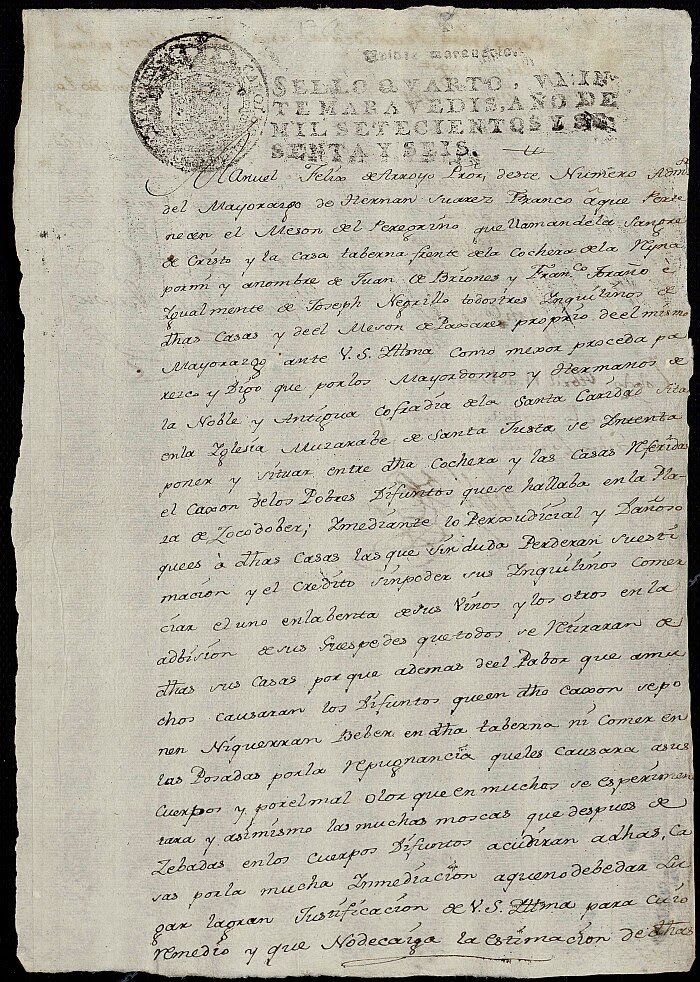 Veinte maravedis.
SELLO QVARTO, VEIN-
TE MARAVEDIS, AÑO DE
MIL SETECIENTOS Y SE-
SENTA Y SEIS.
Manuel Felix de Arroyo Pror, deste Numero Admor
del Mayorazgo de Hernan Suarez Franco â que Perte
necen el Meson del Peregrino que llaman de la Sangre
de Cristo y la Casa taberna frente de la Cochera de la Reyna
por mi y anombre de Juan de Briones y Franco
Igualmente de Joseph Negrillo todos tres Inquilinos de
dhas Casas y de el Meson de Paxares proprio de el mismo
Mayorazgo ante V. S. Yltma Como mexor proceda pa
rezco y Digo que por los Mayordomos y Hermanos de
la Noble y Antigua Cofradia de la Santa Caridad sita
en la Yglesia Muzarabe de Santa Justa se Intenta
poner y situar entre dha Cochera y las Casas Referidas
el Caxon de los Pobres Difuntos que se hallaba en la Pla-
za de Zocodober; Imediante lo Persudicial y Dañoso
que es à dhas Casas las que sin duda Perderan su esti
macion y el Credito sin poder sus Inquilinos Comer
ciar el uno en la benta de sus Vinos y los otros en la
adbision de sus Guespedes que todos se Retiraran de
dhas sus Casas por que ademas de el Pabor que a mu
chos causaran los Difuntos que en dho Caxon se po
nen Ni querran Beber en dha taberna ni Comer en
las Posadas por la repugnancia que les causara a sus
Cuerpos y por el mal olor que en muchos se esperimen
tara y asimismo las muchas moscas que despues de
Zebadas en los Cuerpos Difuntos acudiran a dhas, Ca
sas por la mucha Inmediacion a que no debe dar Lu
gar la gran Justificacion de V. S. Yltma para cuio
remedio y que No decaiga la estimacion de dhas